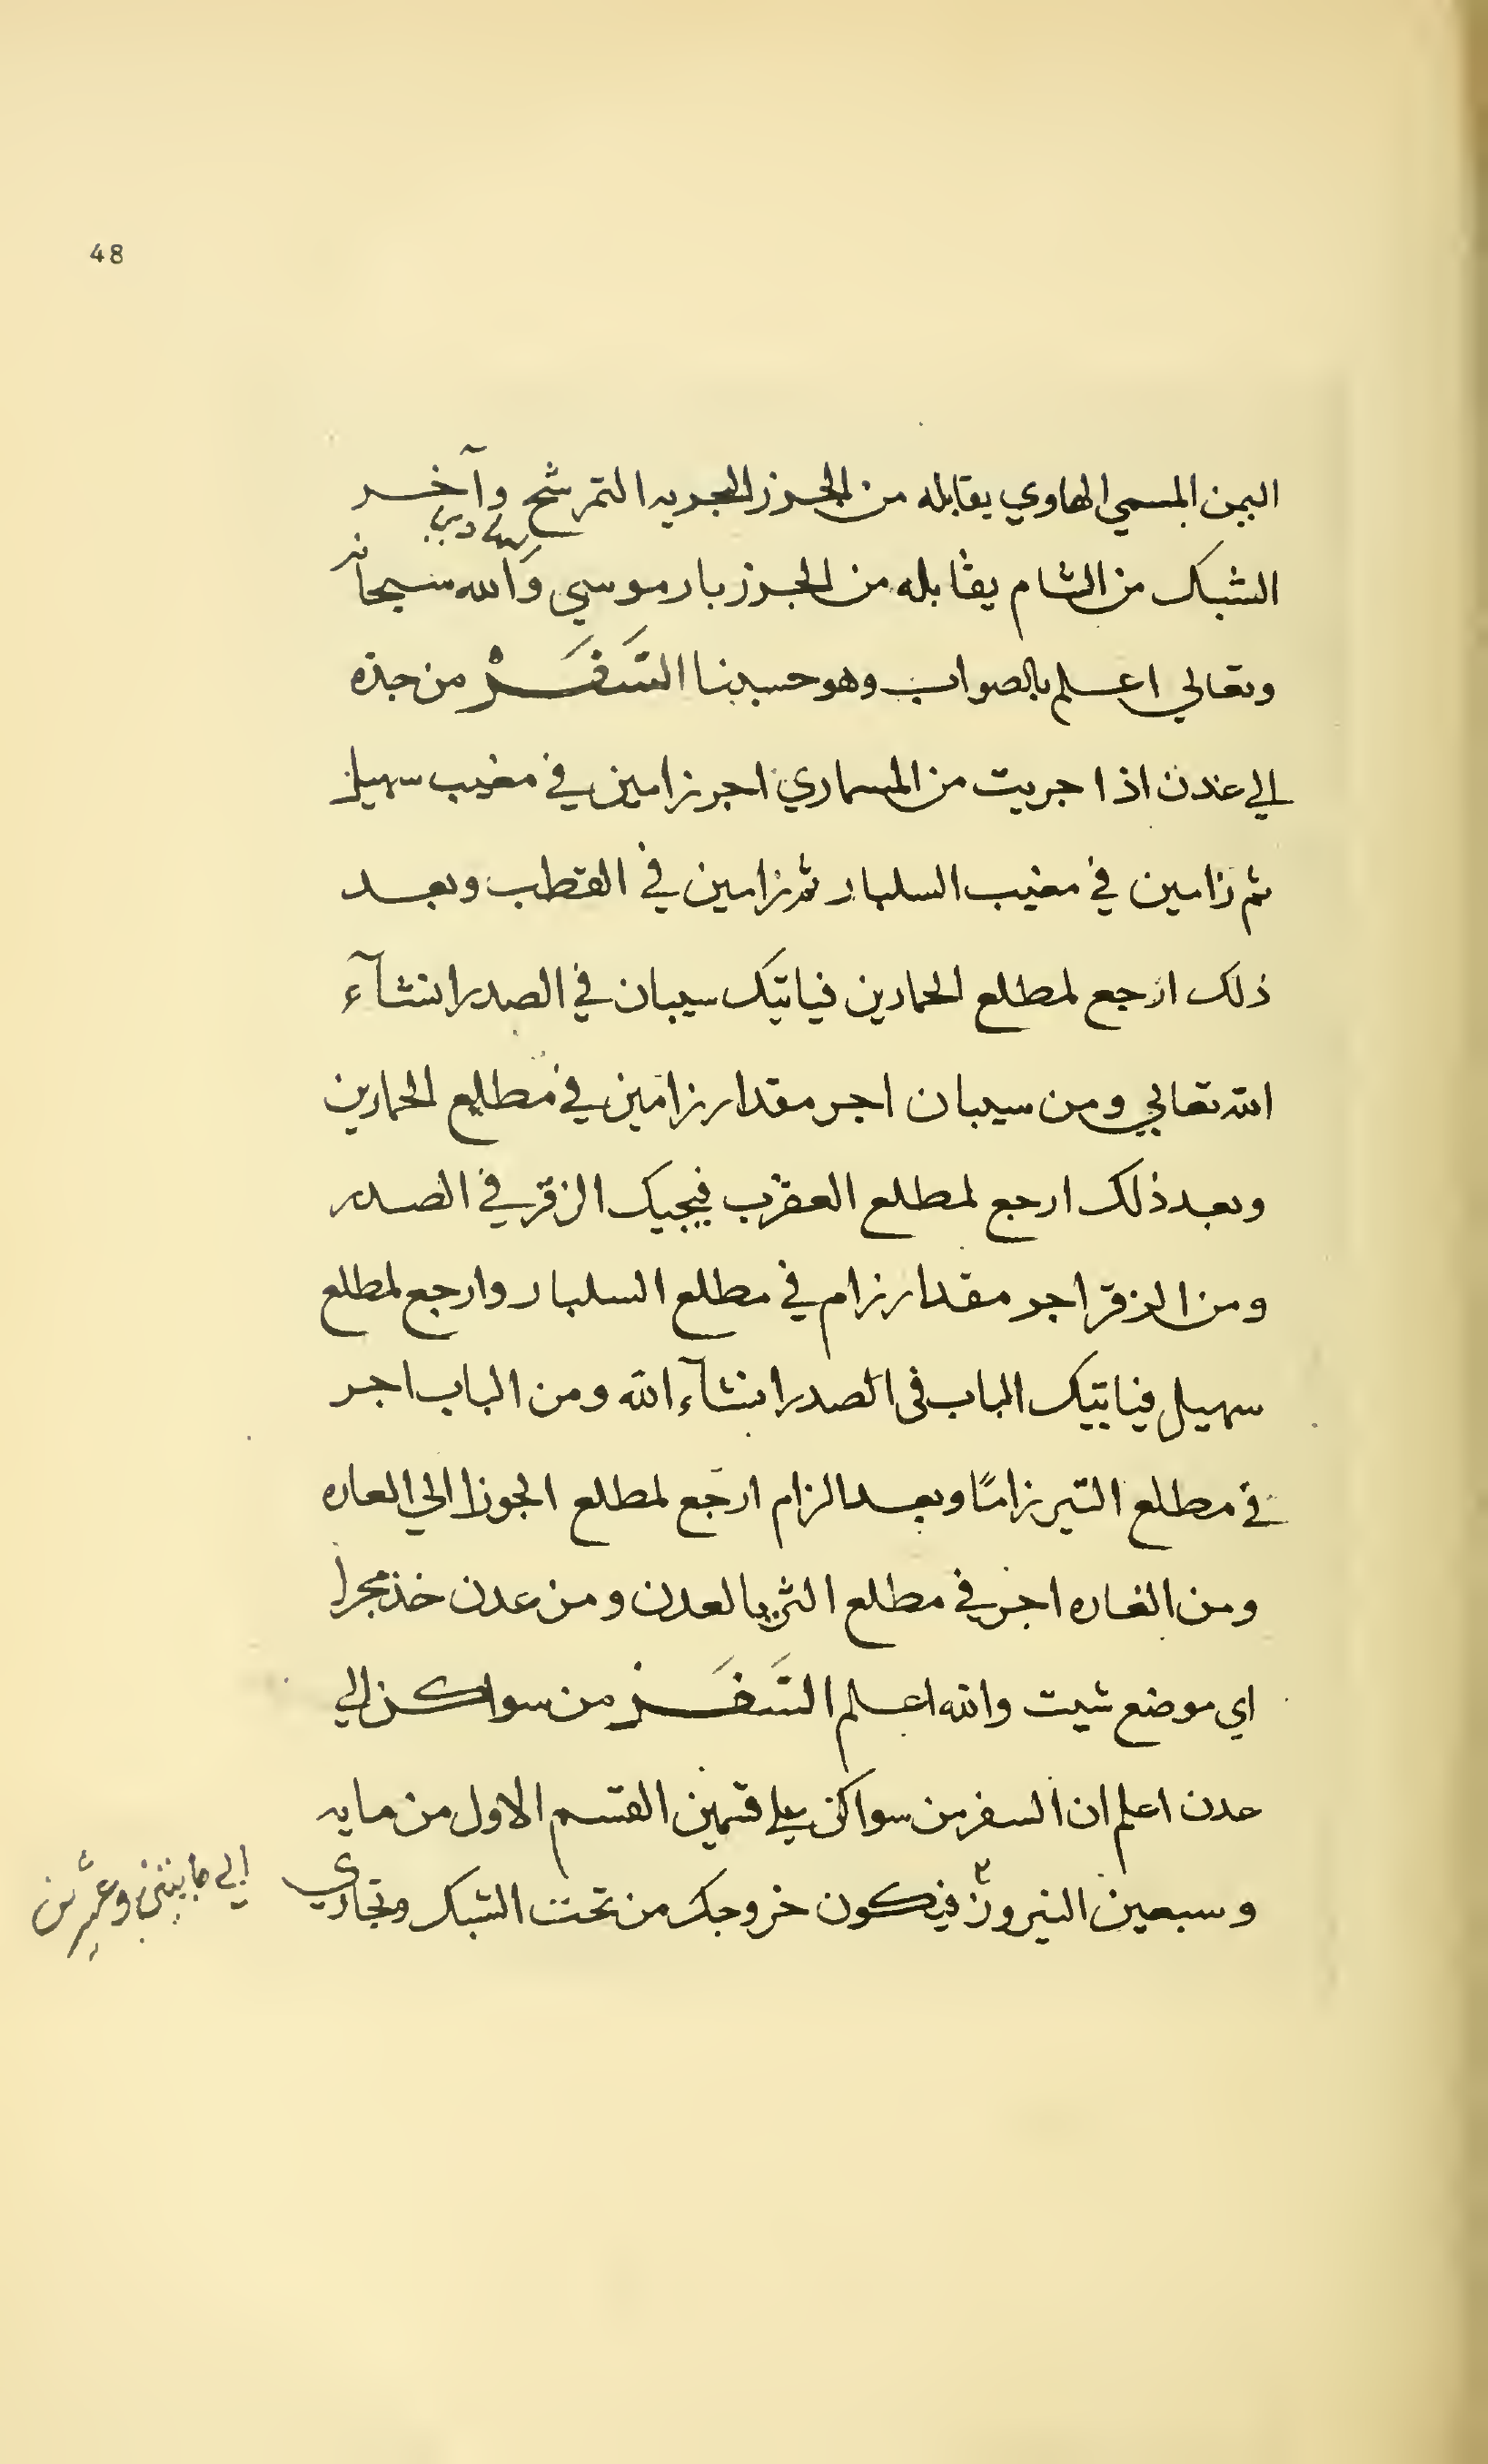 48
اليمن المسمي الهاوي يقابله من الجرز البحريه التمرشح وآخر
الشبك من الشام يقابله من الجرز بارموسي والله سبحانه
وتعالي اعلم بالصواب وهو حسبنا السَفَرْ من جدّه
الي عدن اذا جريت من المسماري اجر زامين في مغيب سهيل
ثم زامين في مغيب السلبار ثم زامين في القطب وبعد
ذلك ارجع لمطلع الحمارين فياتيك سيبان في الصدر انشآء
الله تعالي ومن سيبان اجر مقدار زامين في مطلع الحمارين
وبعد ذلك ارجع لمطلع العقرب فيجيك الزقر في الصدر
ومن الزقر اجر مقدار زام في مطلع السلبار وارجع لمطلع
سهيل فياتيك الباب في الصدر انشآء الله ومن الباب اجر
في مطلع التير زامًا وبعد الزام ارجع لمطلع الجوزا الي العاره
ومن العاره اجر في مطلع الثريا لعدن ومن عدن خذ مجرا
اي موضع شيت والله اعلم السَفَر من سواكن الي
عدن اعلم ان السفر من سواكن علي قسمين القسم الاول من مايه
وسبعين النيروز فيكون خروجك من تحت الشبك وتجاري
الي مايتين وعشرين